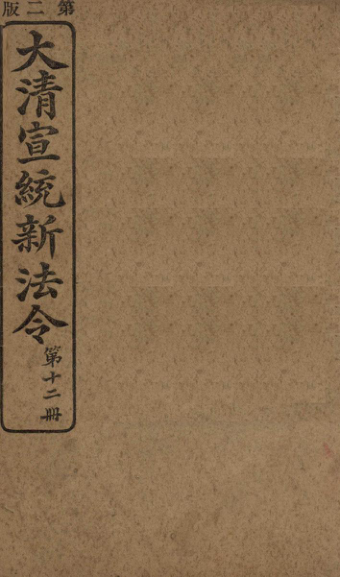 第二版
大清宣統新法令
第十二冊